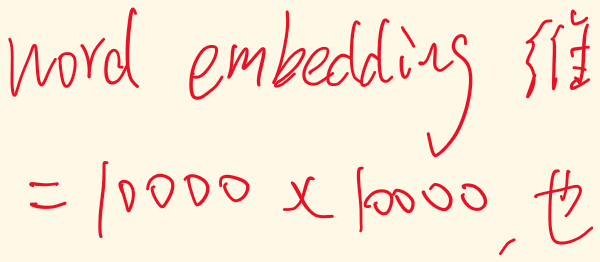 word embedding 维
= 10000 x 10000, 也